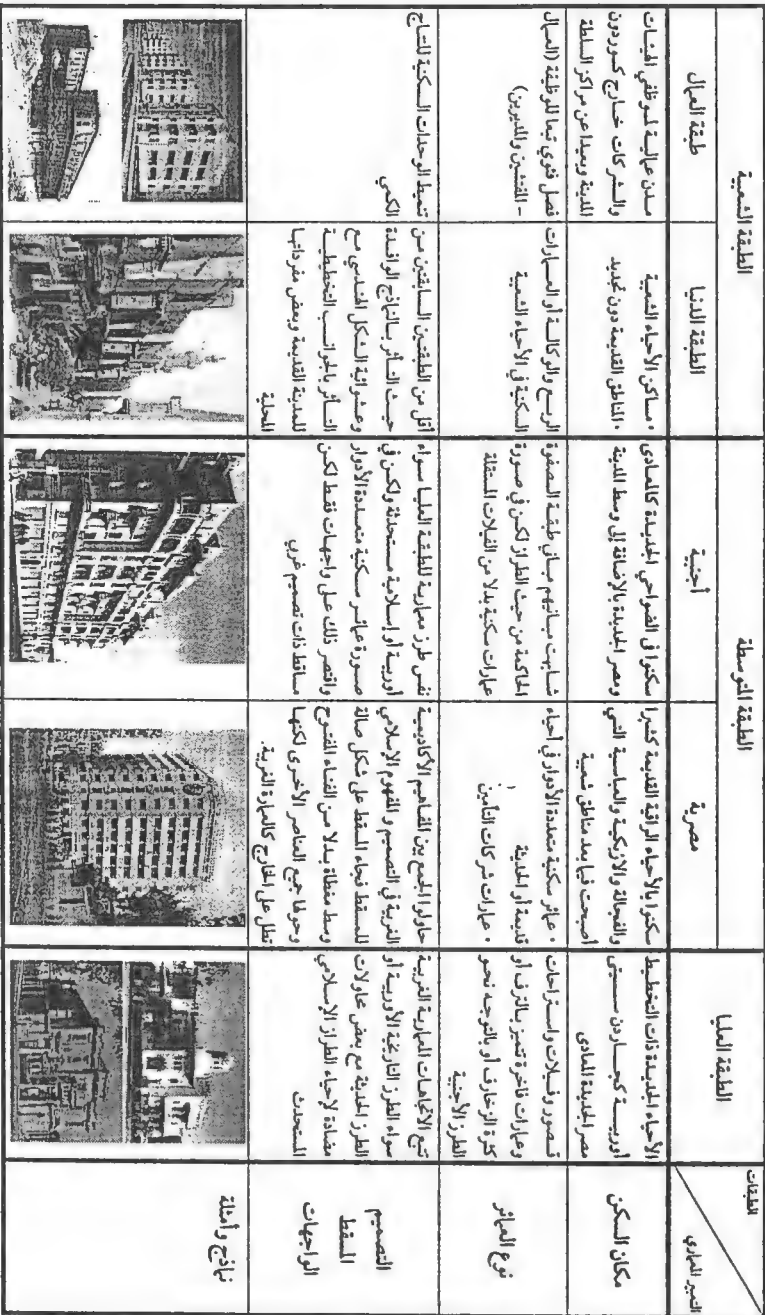 الطبقات
التعبير المعماري
الطبقة العليا
الطبقة المتوسطة
الطبقة الشعبية
مصرية
أجنبية
الطبقة الدنيا
طبقة العمال
مكان السكن
الأحياء الجديدة ذات التخطيط
أوربية كجاردن سيتى
مصر الجديدة المعادى
سكنوا بالأحياء الراقية القديمة كشبرا
والفجالة والأزبكية والعباسية التي
أصبحت فيما بعد مناطق شعبية
سكنوا في الضواحي الجديدة كالمعادى
ومصر الجديدة بالإضافة إلى وسط المدينة
• مساكن الأحياء الشعبية
• المناطق القديمة دون تجديد
مدن عمالية لموظفي الهيئات
والشركات خارج كوردون
المدينة وبعيدا عن مراكز السلطة
نوع العمائر
قصور وفيلات واستراحات
وعمارات فاخرة تتميز بالترف أو
كثرة الزخارف أو بالتوجه نحو
الطرز الأجنبية
• عمائر سكنية متعددة الأدوار في أحياء
قديمة أو الحديثة
• عمارات شركات التأمين
شابهت مبانيهم مباني طبقة الصفوة
الحاكمة من حيث الطراز لكن في صورة
عمارات سكنية بدلا من الفيلات المستقلة
الربع والوكالة أو العمارات
السكنية في الأحياء الشعبية
فصل فئوي تبعا للوظيفة (العمال
- المفتشين والمديرين)
التصميم
المسقط
الواجهات
تتبع الاتجاهات المعمارية الغربية
سواء الطرز التاريخية الأوربية أو
الطرز الحديثة مع بعض محاولات
مضادة لإحياء الطراز الإسلامي
المستحدث
حاولوا الجمع بين المفاهيم الأكاديمية
الغربية في التصميم والمفهوم الإسلامي
للمسقط فجاء المسقط على شكل صالة
وسط مغطاة بدلا من الفناء المفتوح
وحولها جميع العناصر الأخرى لكنها
تطل على الخارج كالعمارة الغربية.
نفس طرز معمارية للطبقة العليا سواء
أوربية أو إسلامية مستحدثة ولكن في
صورة عمائر سكنية متعددة الأدوار
واقتصر ذلك على واجهات فقط لكن
مساقط ذات تصميم غربي
أقل من الطبقتين السابقتين من
حيث التأثر بالنماذج الوافدة
وعشوائية الشكل الهندسي مع
التأثر بالجوانب التخطيطية
للمدينة القديمة وبعض مفرداتها
المحلية
تنميط الوحدات السكنية للنتاج
الكمي
نماذج وأمثلة